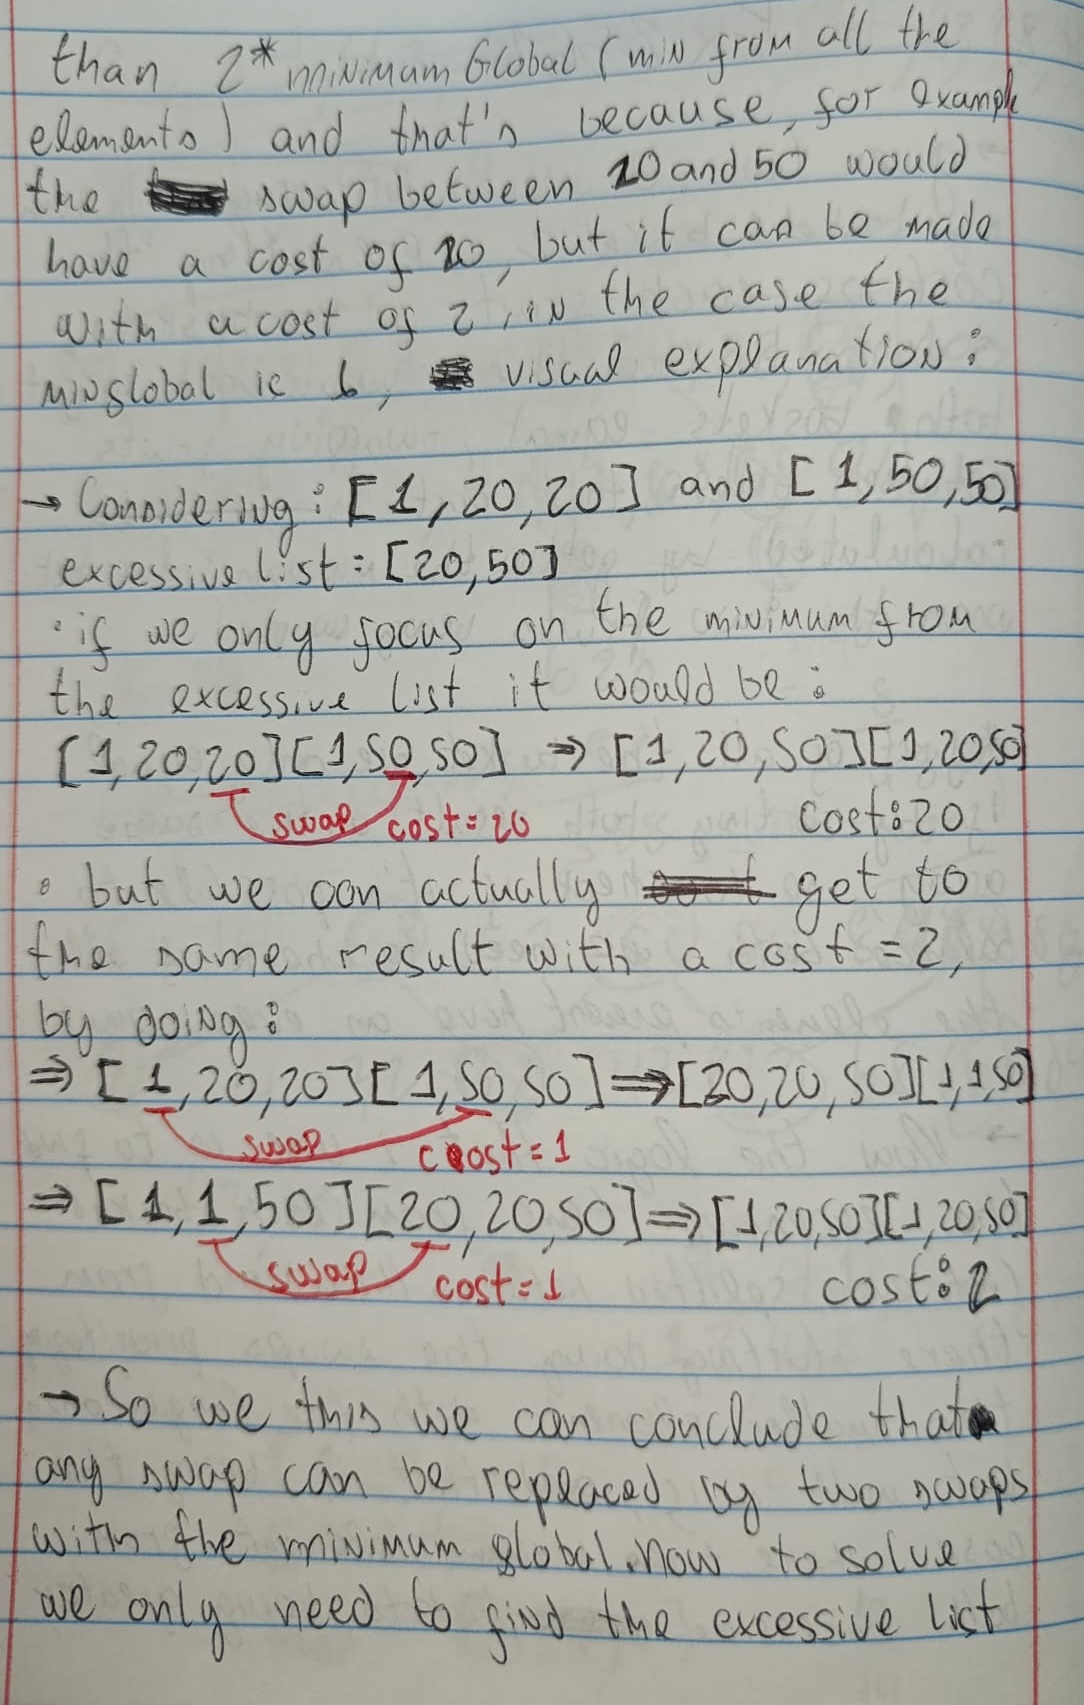 than 2* minimum Global (min from all the
elements) and that's because, for example
the swap between 20 and 50 would
have a cost of 20, but it can be made
with a cost of 2, in the case the
minglobal is 1, visual explanation:
→ Considering: [1,20,20] and [1,50,50]
excessive list = [20,50]
· if we only focus on the minimum from
the excessive list it would be:
[1,20,20][1,50,50] ⇒ [1,20,50][1,20,50]
swap cost=20 cost:20
· but we can actually get to
the same result with a cost = 2,
by doing:
⇒ [1,20,20][1,50,50] ⇒ [20,20,50][1,1,50]
swap cost=1
⇒ [1,1,50][20,20,50] ⇒ [1,20,50][1,20,50]
swap cost=1 cost:2
→ So we this we can conclude that
any swap can be replaced by two swaps
with the minimum global. now to solve
we only need to find the excessive list